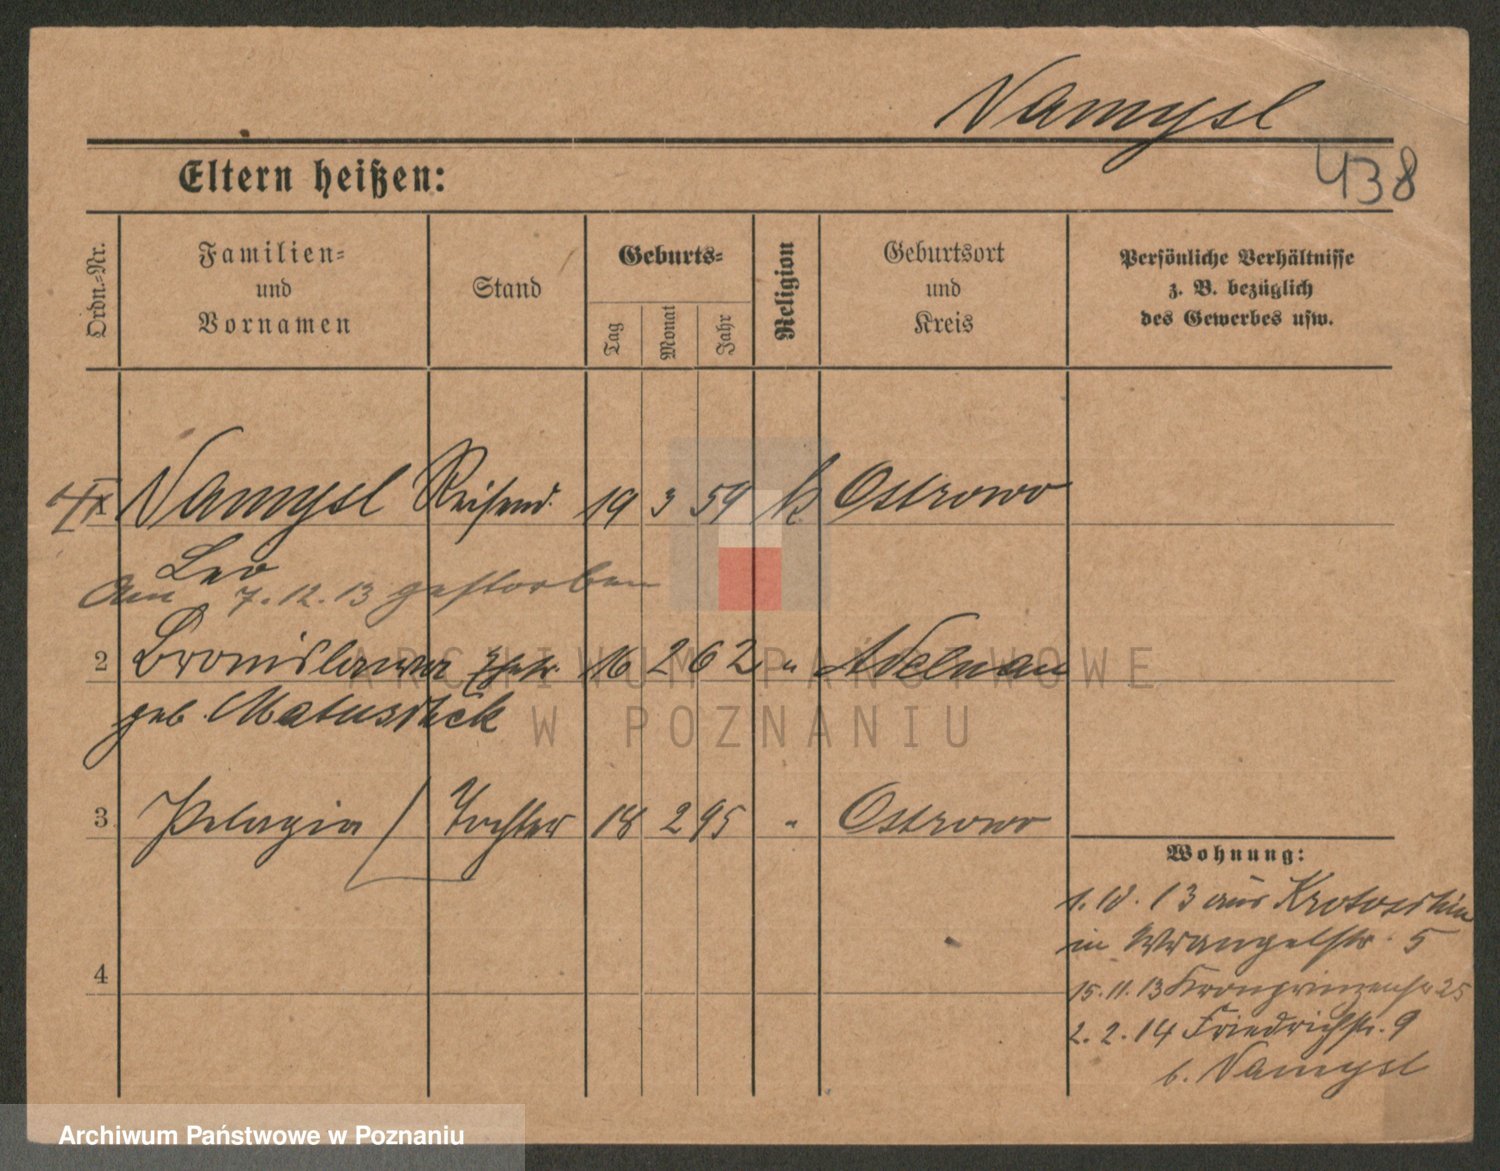 Namysl
438
Eltern heißen:
Ordn.-Nr.
Familien-
und
Vornamen
Stand
Geburts-
Tag
Monat
Jahr
Religion
Geburtsort
und
Kreis
Persönliche Verhältnisse
z. B. bezüglich
des Gewerbes usw.
1 Namysl Reisend. 19 3 59 k Ostrowo
Leo
Am 7.12.13 gestorben
2 Bronislawa Ehefr. 16 2 62 " Adelnau
geb. Matuszack
3 Pelagia Tochter 18 2 95 " Ostrowo
4
Wohnung:
1.10.13 aus Krotoschin
in Wrangelstr. 5
15.11.13 Kronprinzenstr 25
2.2.14 Friedrichstr. 9
b. Namysl
ARCHIWUM PAŃSTWOWE
W POZNANIU
Archiwum Państwowe w Poznaniu